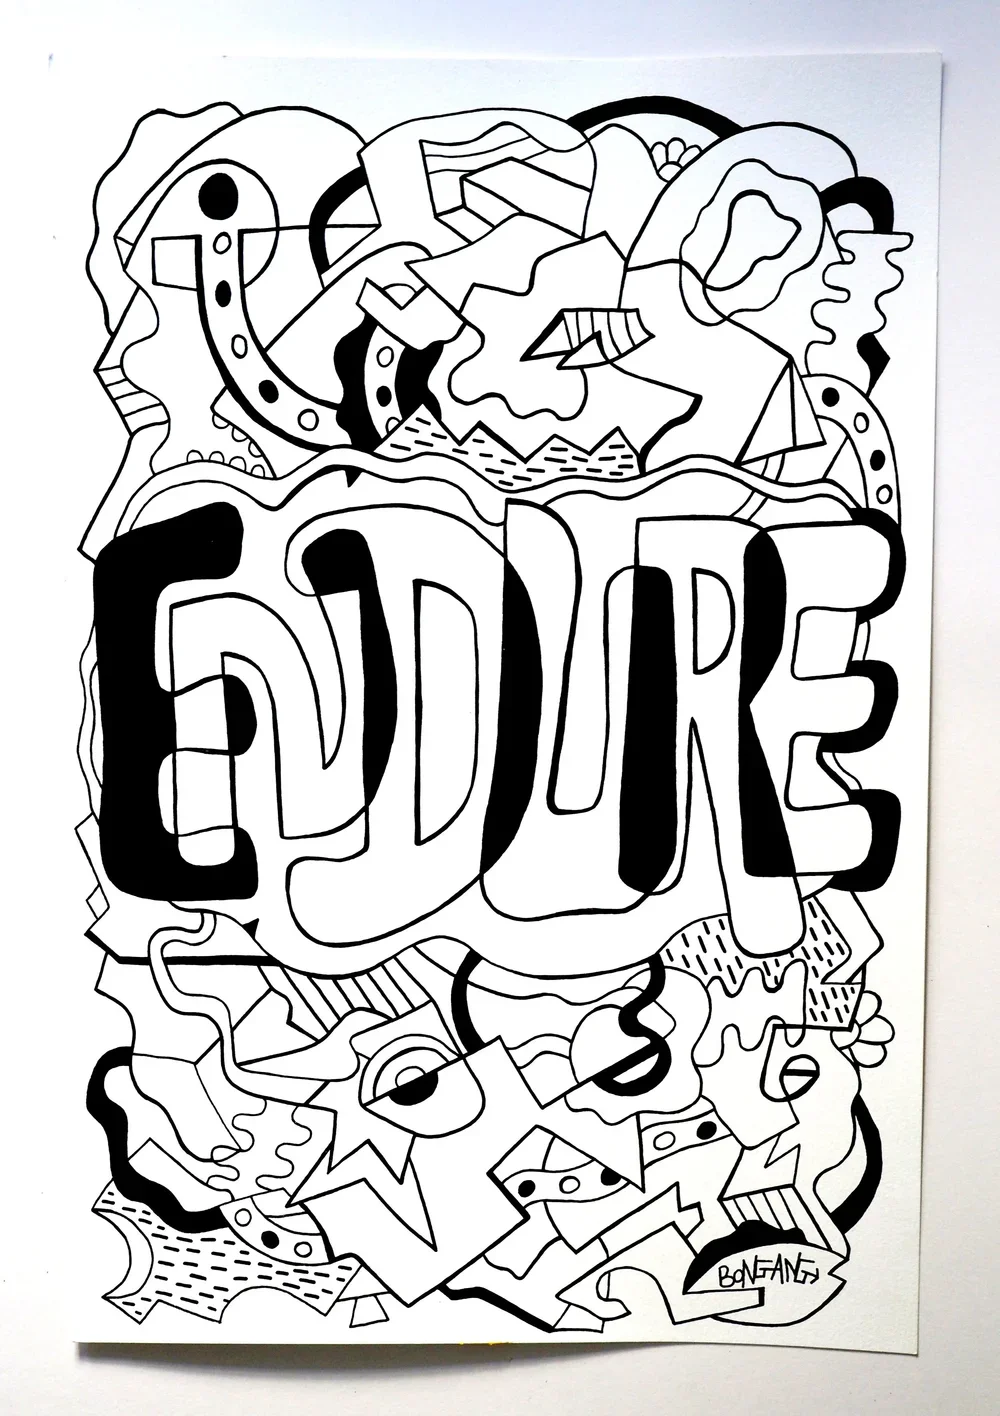 ENDURE
BONGANG